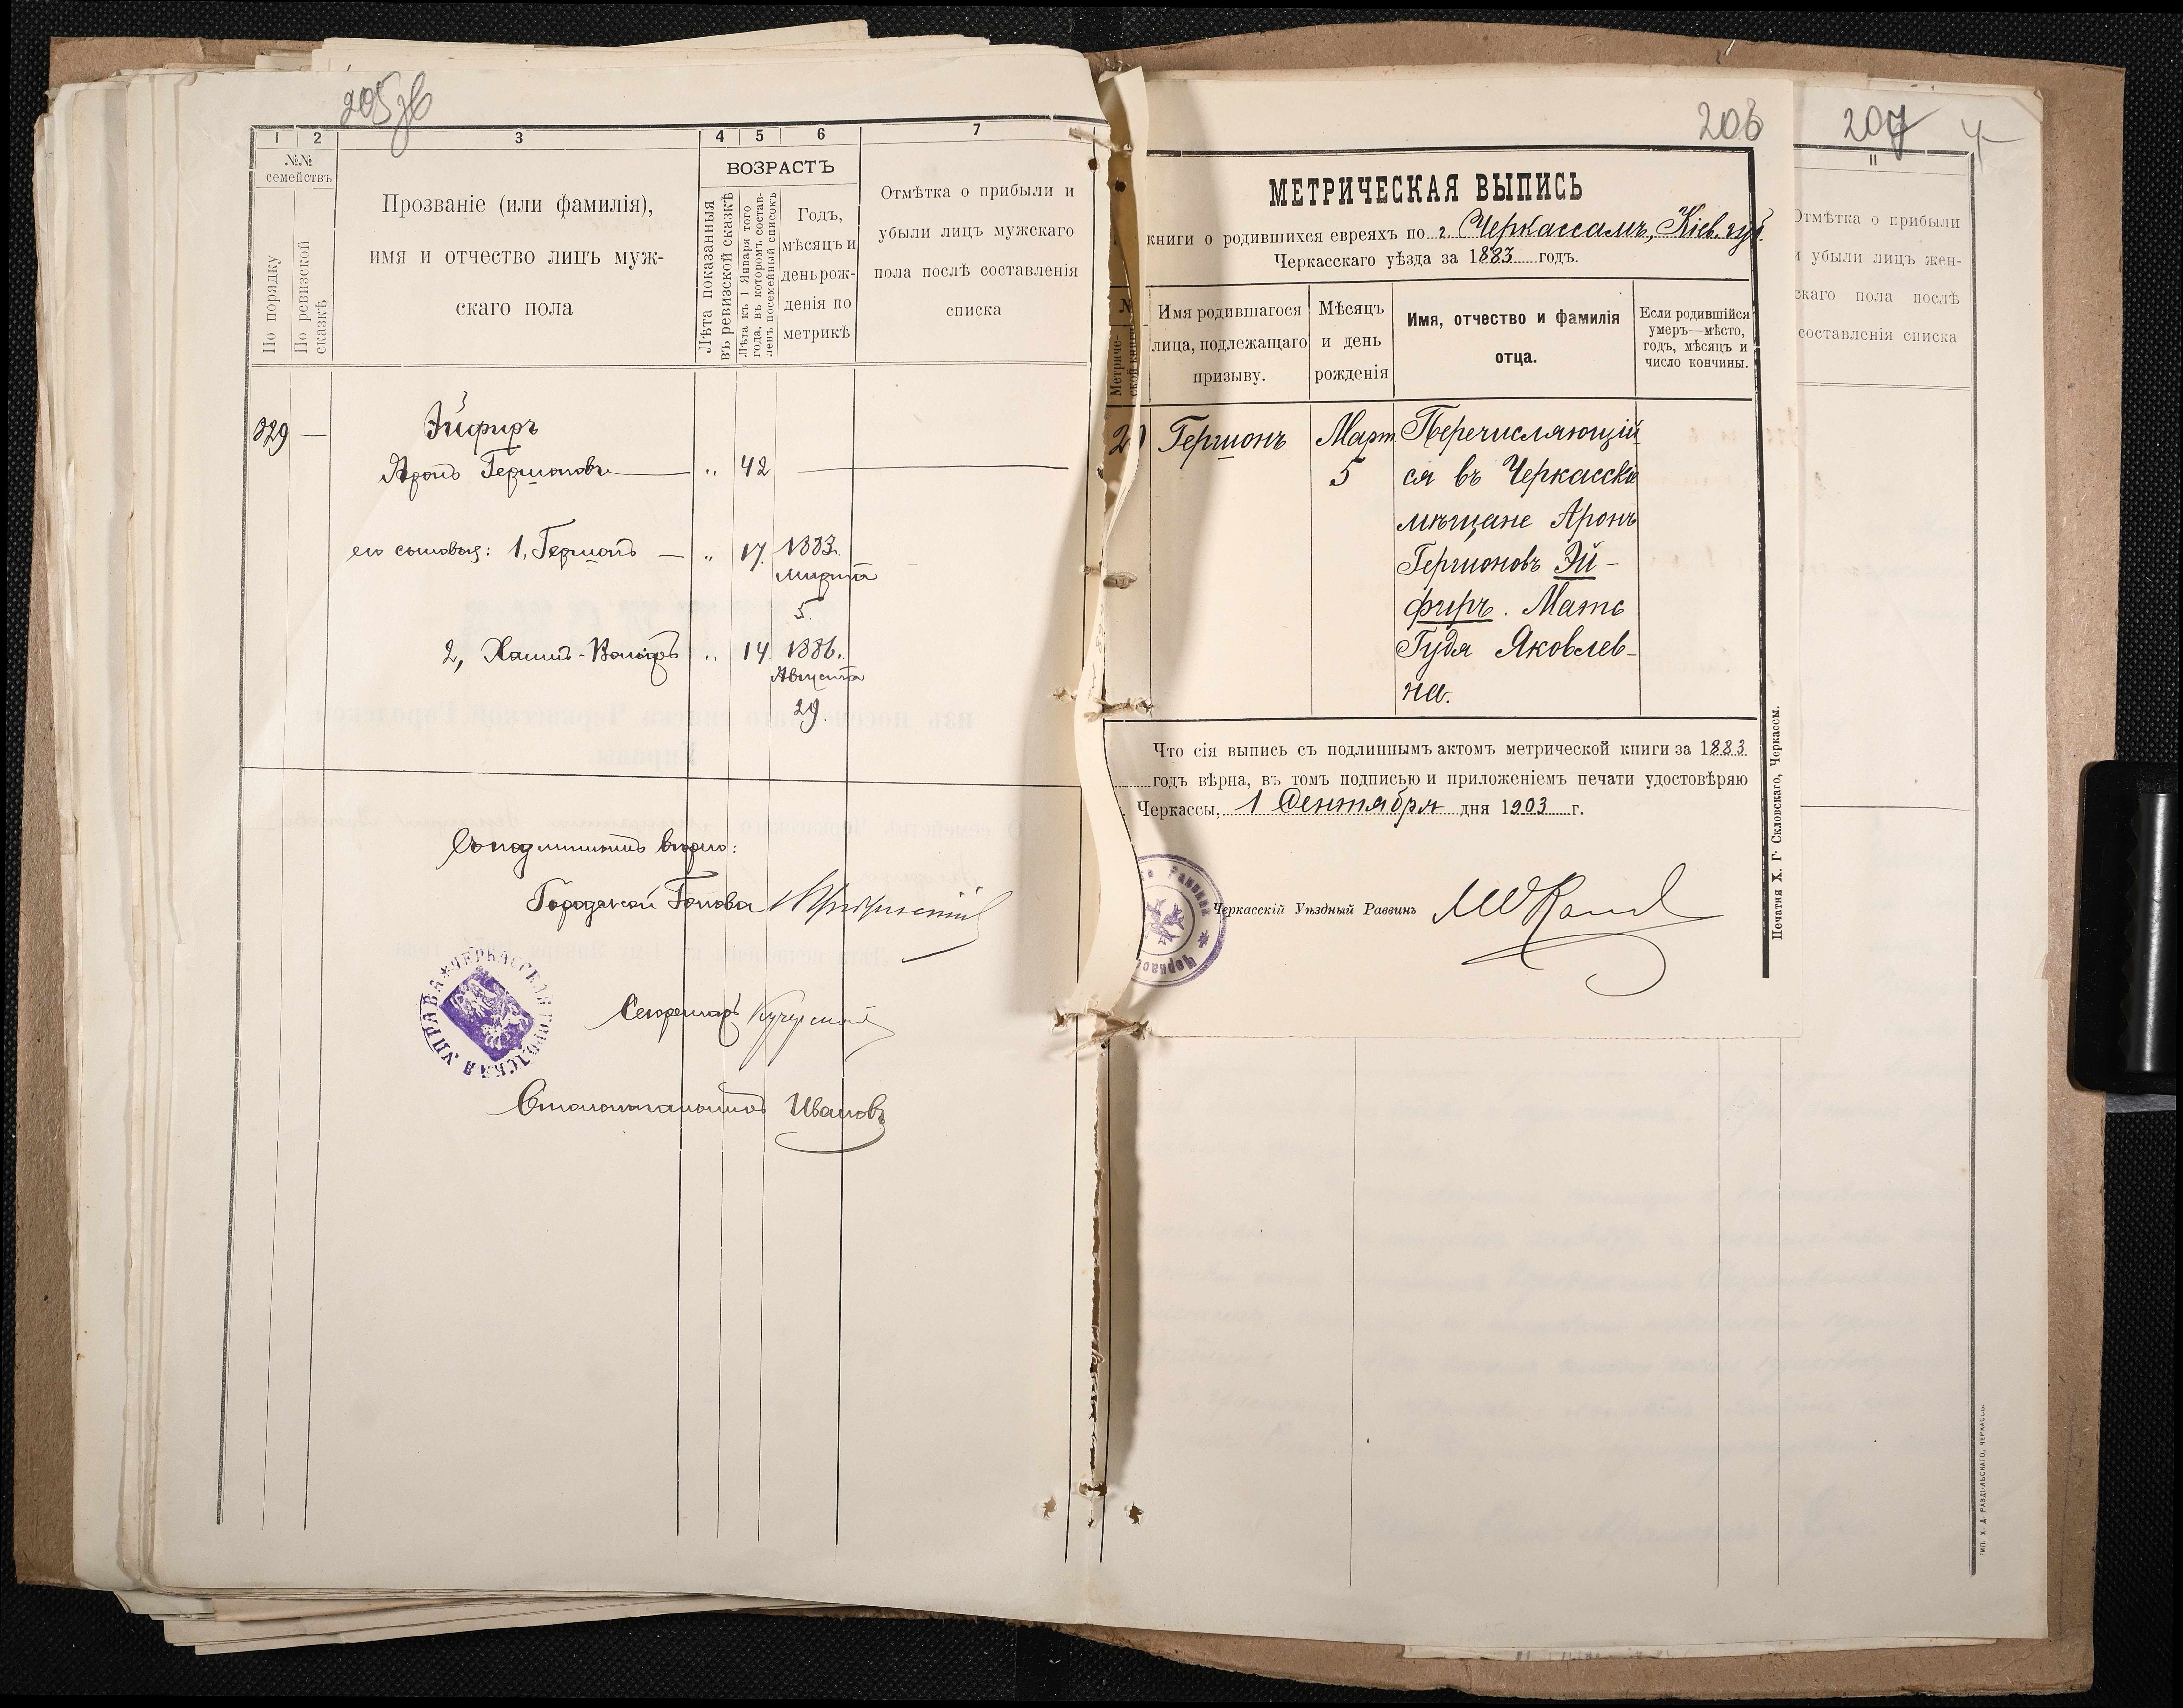 205 об
1 2 3 4 5 6 7
№№ семействъ
По порядку
По ревизской сказкѣ
Прозваніе (или фамилія),
имя и отчество лицъ муж-
скаго пола
ВОЗРАСТЪ
Лѣта показанныя въ ревизской сказкѣ
Лѣта къ 1 Января того года, въ которомъ составленъ посемейный списокъ
Годъ,
мѣсяцъ и
день рож-
денія по
метрикѣ
Отмѣтка о прибыли и
убыли лицъ мужскаго
пола послѣ составленія
списка
329 —
Эйфиръ
Аронъ Гершоновъ — " 42 —
его сыновья: 1, Гершонъ — " 17. 1883.
Марта
5.
2, Хаимъ- " 14 1886.
Августа
29.
Съ подлиннымъ вѣрно:
Городской Голова
Секретарь
Столоначальникъ Ивановъ
ЧЕРКАССКАЯ ГОРОДСКАЯ УПРАВА
206
МЕТРИЧЕСКАЯ ВЫПИСЬ
книги о родившихся евреяхъ по г. Черкассамъ, Кіев. губ.
Черкасскаго уѣзда за 1883 годъ.
№
Метриче-
ской книги
Имя родившагося
лица, подлежащаго
призыву.
Мѣсяцъ
и день
рожденія
Имя, отчество и фамилія
отца.
Если родившійся
умеръ—мѣсто,
годъ, мѣсяцъ и
число кончины.
Гершонъ Март Перечисляющій
5 ся въ Черкасскіе
мѣщане Аронъ
Гершоновъ Эй-
фиръ. Мать
Гудя Яковлев-
на.
Что сія выпись съ подлиннымъ актомъ метрической книги за 1883
годъ вѣрна, въ томъ подписью и приложеніемъ печати удостовѣряю
Черкассы, 1 Сентября дня 1903 г.
Черкасскій Уѣздный Раввинъ
Печатня Х. Г. Скловскаго, Черкассы.
207
11
Отмѣтка о прибыли
и убыли лицъ жен-
скаго пола послѣ
составленія списка
ТИП. Х. Д. РАВДОЛЬСКАГО, ЧЕРКАССЫ.